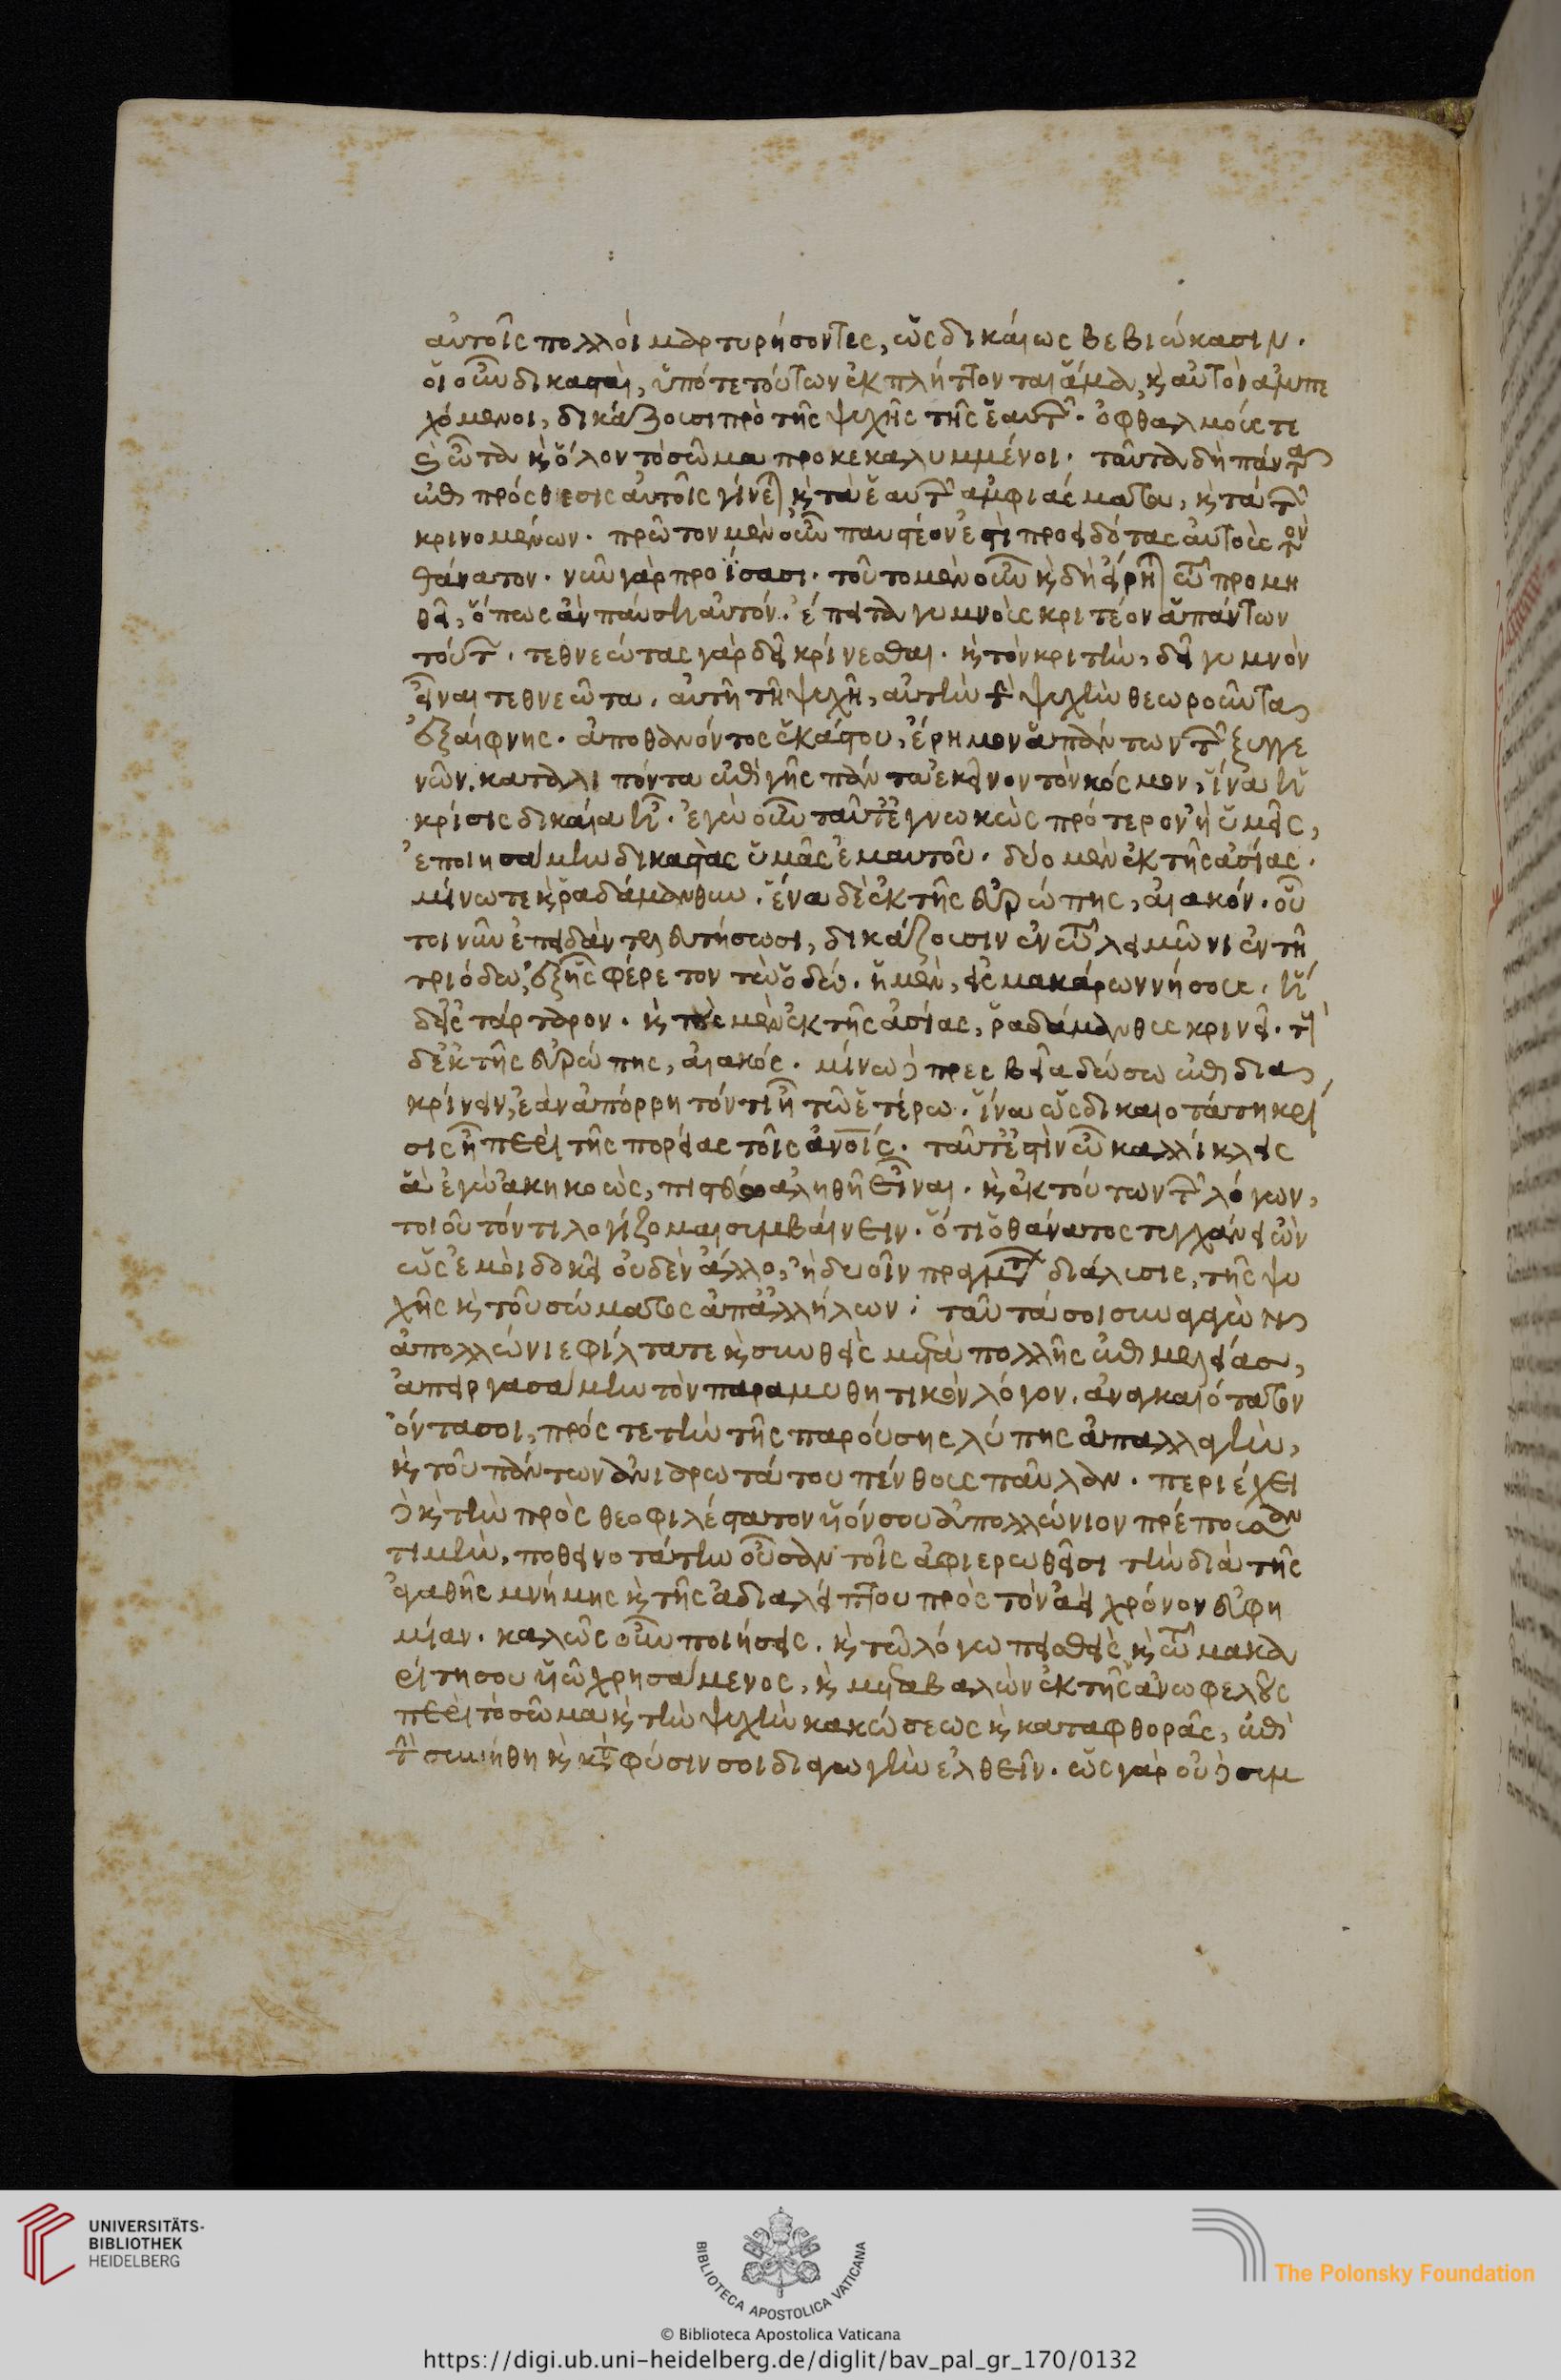 αὐτοῖς πολλοὶ μαρτυρήσοντες, ὡς δικαίως βεβιώκασιν.
οἱ οὖν δικασταὶ, ὑπό τε τούτων ἐκπλήττονται ἅμα, κ̀ αὐτοὶ ἀμπε
χόμενοι, δικάζουσι πρὸ τῆς ψυχῆς τῆς ἑαυτῶν. ὀφθαλμούς τε
κ̀ ὦτα κ̀ ὅλον τὸ σῶμα προκεκαλυμμένοι. ταῦτα δὴ πάντα
ἐπιπρόσθεσις αὐτοῖς γίνεται κ̀ τὰ ἑαυτῶν ἀμφιάσματα, κ̀ τὰ τῶν
κρινομένων. πρῶτον μὲν οὖν παυστέον ἐστὶ προειδότας αὐτοὺς τὸν
θάνατον. νῦν γὰρ προΐσασι. τοῦτο μὲν οὖν κ̀ δὴ εἴρηται τῷ προμη
θεῖ, ὅπως ἂν παύσῃ αὐτόν. ἔπειτα γυμνοὺς κριτέον ἁπάντων
τούτων. τεθνεῶτας γὰρ δεῖ κρίνεσθαι. κ̀ τὸν κριτὴν, δεῖ γυμνὸν
εἶναι τεθνεῶτα. αὐτῇ τῇ ψυχῇ, αὐτὴν τὴν ψυχὴν θεωροῦντα
ἐξαίφνης. ἀποθανόντος ἑκάστου, ἔρημον ἁπάντων τῶν ξυγγε
νῶν. καταλιπόντα ἐπὶ γῆς πάντα ἐκεῖνον τὸν κόσμον, ἵνα ἡ
κρίσις δικαία ᾖ. ἐγὼ οὖν ταῦτ' ἐγνωκὼς πρότερον ἢ ὑμεῖς,
ἐποιησάμην δικαστὰς ὑμᾶς ἐμαυτοῦ. δύο μὲν ἐκ τῆς ἀσίας.
μίνω τε κ̀ ῥαδάμανθυν. ἕνα δὲ ἐκ τῆς εὐρώπης, αἰακόν. οὗ
τοι νῦν ἐπειδὰν τελευτήσωσι, δικάζουσιν ἐν τῷ λειμῶνι ἐν τῇ
τριόδῳ, ἐξ ἧς φέρετον τὼ ὁδώ. ἡ μὲν, εἰς μακάρων νήσους. ἡ
δ' εἰς τάρταρον. κ̀ τοὺς μὲν ἐκ τῆς ἀσίας, ῥαδάμανθυς κρινεῖ. τοὺς
δ' ἐκ τῆς εὐρώπης, αἰακός. μίνῳ δὲ πρεσβεῖα δώσω ἐπιδια
κρίνειν, ἐὰν ἀπόρρητόν τι ᾖ τῷ ἑτέρῳ. ἵνα ὡς δικαιοτάτη κρί
σις ᾖ περὶ τῆς πορείας τοῖς ἀνοις. ταῦτ' ἐστὶν ὦ καλλίκλεις
ἃ ἐγὼ ἀκηκοὼς, πιστεύω ἀληθῆ εἶναι. κ̀ ἐκ τούτων τῶν λόγων,
τοιοῦτόν τι λογίζομαι συμβαίνειν. ὅτι ὁ θάνατος τυγχάνει ὢν
ὡς ἐμοὶ δοκεῖ οὐδὲν ἄλλο, ἢ δυοῖν πραγμάτων διάλυσις, τῆς ψυ
χῆς κ̀ τοῦ σώματος ἀπ' ἀλλήλων; ταῦτά σοι συναγαγὼν
ἀπολλώνιε φίλτατε κ̀ συνθεὶς μετὰ πολλῆς ἐπιμελείας,
ἀπειργασάμην τὸν παραμυθητικὸν λόγον. ἀναγκαιότατον
ὄντα σοι, πρός τε τὴν τῆς παρούσης λύπης ἀπαλλαγὴν,
κ̀ τοῦ πάντων ἀνιαρωτάτου πένθους παῦλαν. περιέχει
δὲ κ̀ τὴν πρὸς θεοφιλέστατον υἱόν σου ἀπολλώνιον πρέπουσαν
τιμὴν, ποθεινοτάτην οὖσαν τοῖς ἀφιερωθεῖσι τὴν διὰ τῆς
ἀγαθῆς μνήμης κ̀ τῆς ἀδιαλείπτου πρὸς τὸν ἀεὶ χρόνον εὐφη
μίαν. καλῶς οὖν ποιήσεις. κ̀ τῷ λόγῳ πεισθεὶς κ̀ τῷ μακα
ρίτῃ σου υἱῷ χρησάμενος, κ̀ μεταβαλὼν ἐκ τῆς ἀνωφελοῦς
περὶ τὸ σῶμα κ̀ τὴν ψυχὴν κακώσεως κ̀ καταφθορᾶς, ἐπὶ
τὴν συνήθη κ̀ κατὰ φύσιν σοι διαγωγὴν ἐλθεῖν. ὡς γὰρ οὐδὲ συμ
UNIVERSITÄTS-
BIBLIOTHEK
HEIDELBERG
BIBLIOTECA APOSTOLICA VATICANA
The Polonsky Foundation
© Biblioteca Apostolica Vaticana
https://digi.ub.uni-heidelberg.de/diglit/bav_pal_gr_170/0132